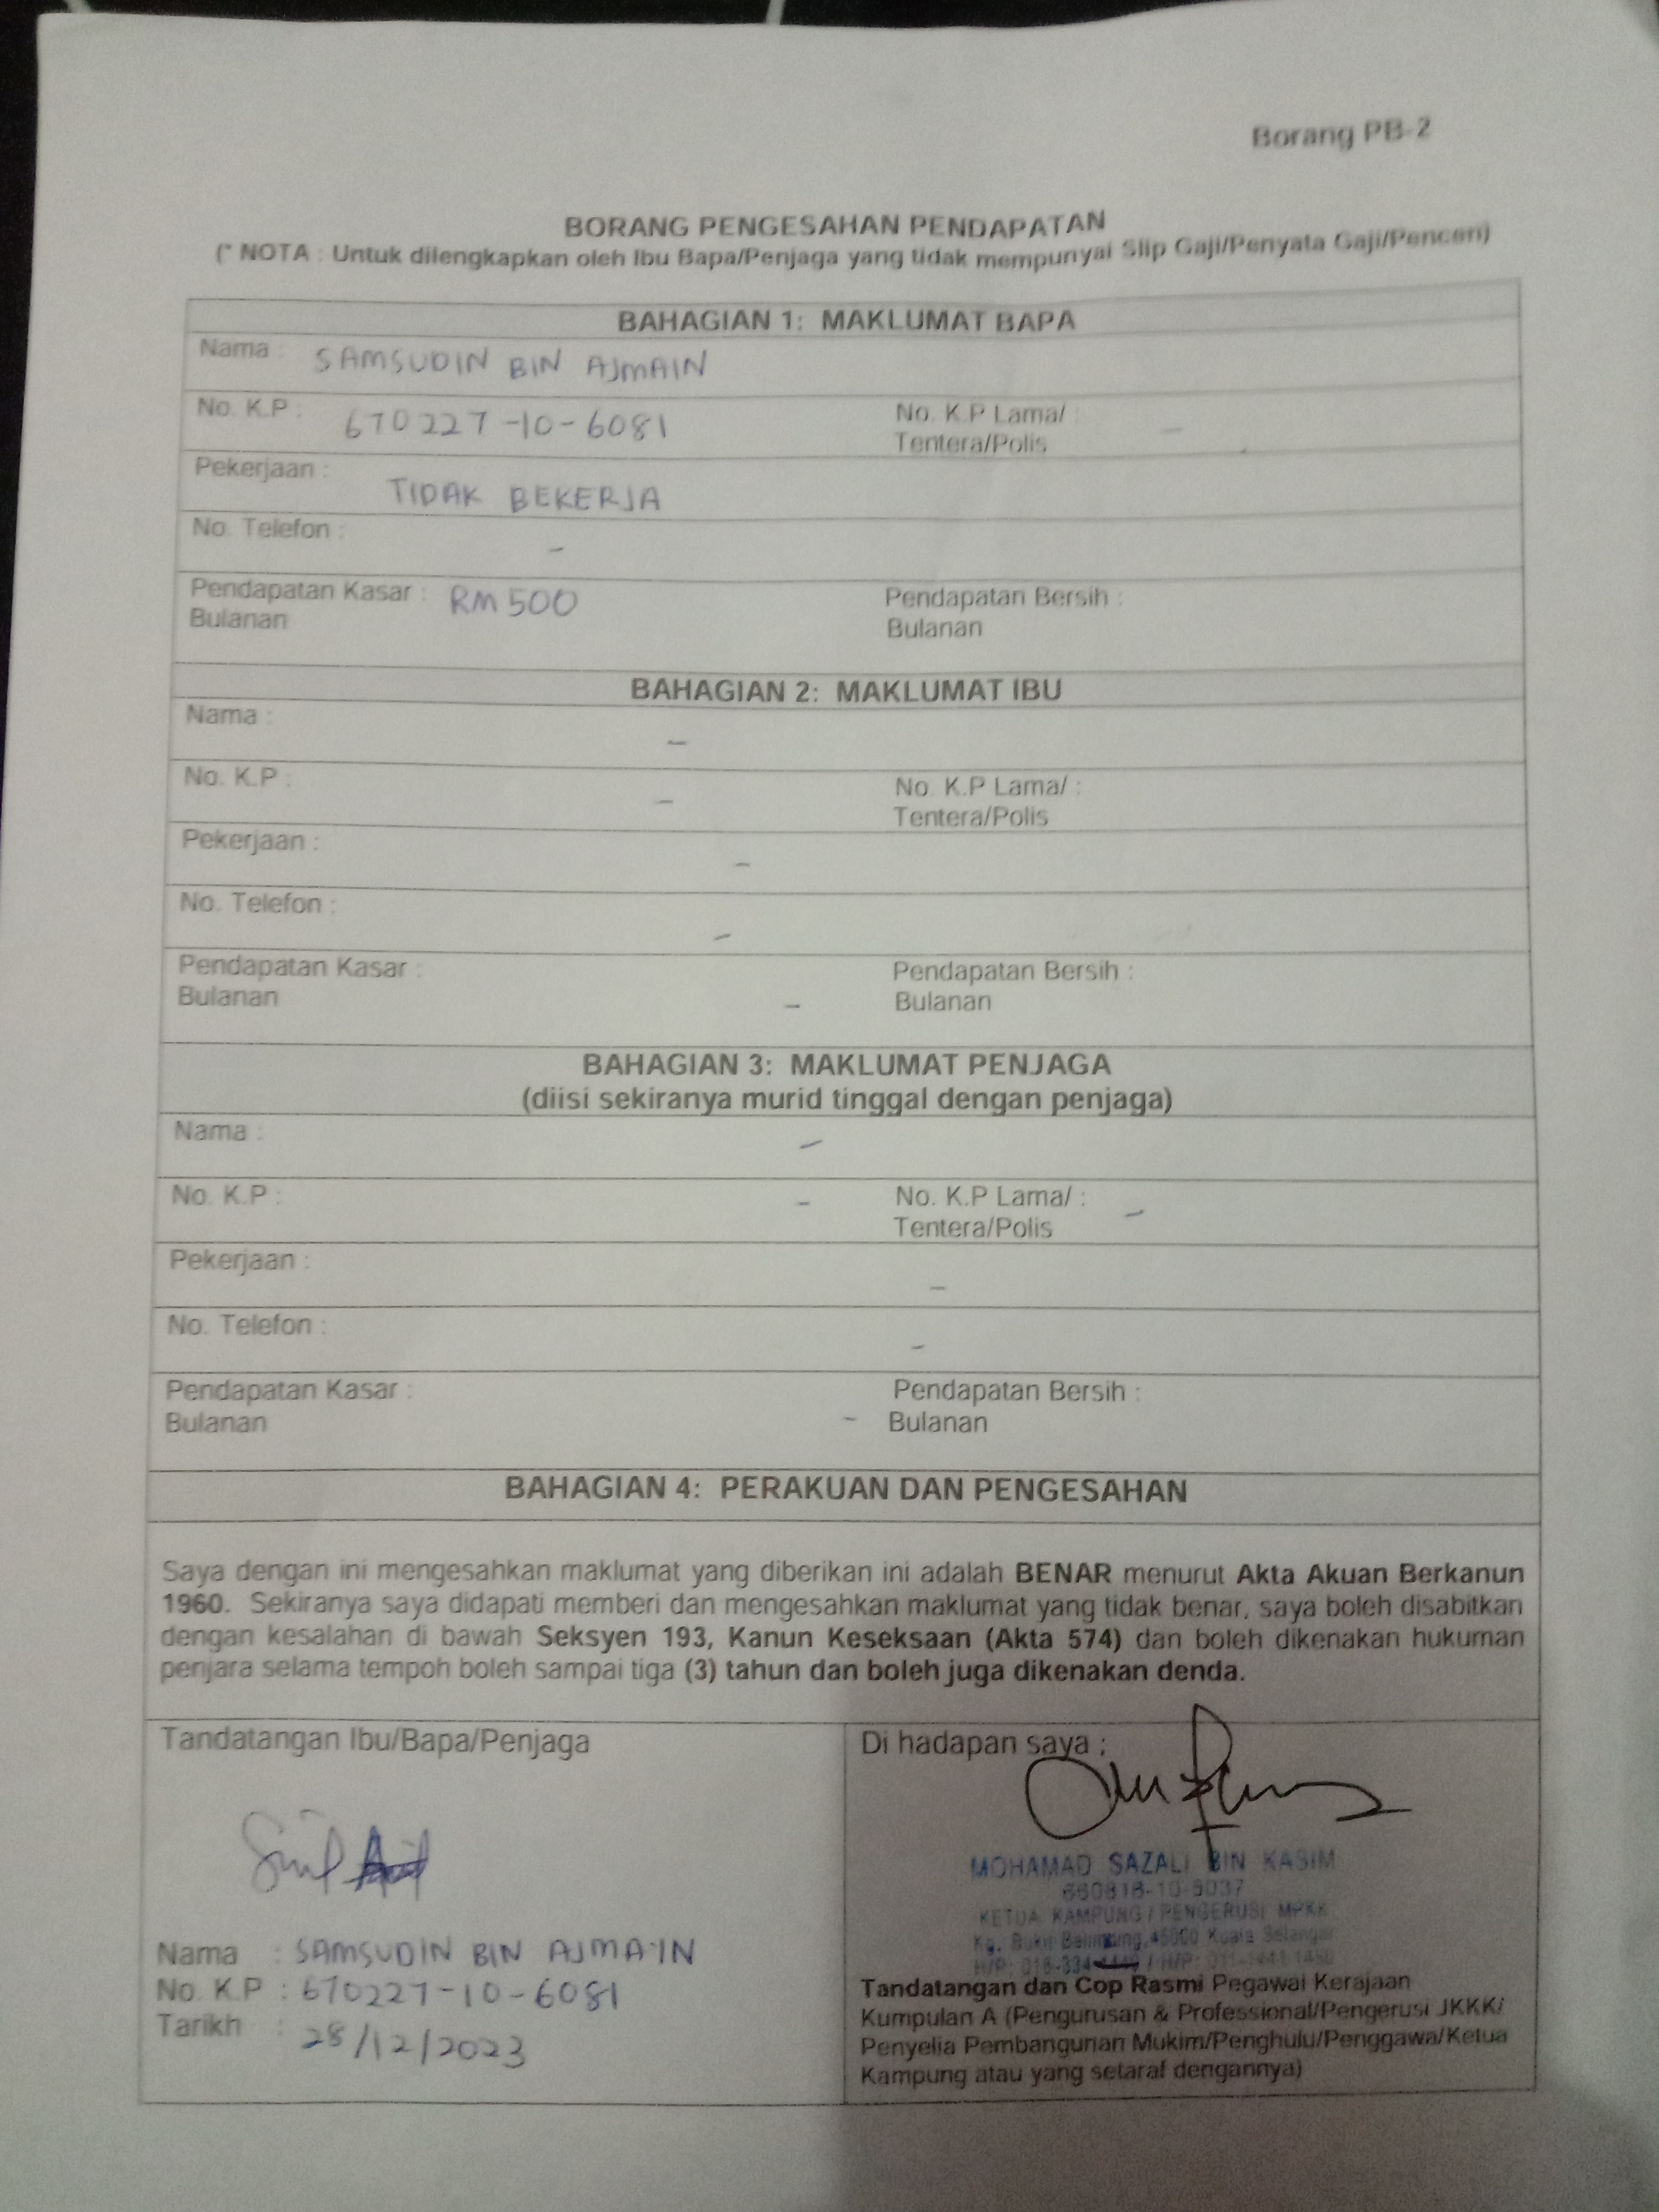 Borang PB-2
BORANG PENGESAHAN PENDAPATAN
(* NOTA : Untuk dilengkapkan oleh Ibu Bapa/Penjaga yang tidak mempunyai Slip Gaji/Penyata Gaji/Pencen)
BAHAGIAN 1: MAKLUMAT BAPA
Nama : SAMSUDIN BIN AJMAIN
No. K.P : 670227-10-6081 No. K.P Lama/ : -
Tentera/Polis
Pekerjaan : TIDAK BEKERJA
No. Telefon : -
Pendapatan Kasar : RM 500 Pendapatan Bersih :
Bulanan Bulanan
BAHAGIAN 2: MAKLUMAT IBU
Nama : -
No. K.P : - No. K.P Lama/ :
Tentera/Polis
Pekerjaan : -
No. Telefon : -
Pendapatan Kasar : Pendapatan Bersih :
Bulanan - Bulanan
BAHAGIAN 3: MAKLUMAT PENJAGA
(diisi sekiranya murid tinggal dengan penjaga)
Nama : -
No. K.P : - No. K.P Lama/ : -
Tentera/Polis
Pekerjaan : -
No. Telefon : -
Pendapatan Kasar : Pendapatan Bersih :
Bulanan - Bulanan
BAHAGIAN 4: PERAKUAN DAN PENGESAHAN
Saya dengan ini mengesahkan maklumat yang diberikan ini adalah BENAR menurut Akta Akuan Berkanun
1960. Sekiranya saya didapati memberi dan mengesahkan maklumat yang tidak benar, saya boleh disabitkan
dengan kesalahan di bawah Seksyen 193, Kanun Keseksaan (Akta 574) dan boleh dikenakan hukuman
penjara selama tempoh boleh sampai tiga (3) tahun dan boleh juga dikenakan denda.
Tandatangan Ibu/Bapa/Penjaga
Nama : SAMSUDIN BIN AJMAIN
No. K.P : 670227-10-6081
Tarikh : 28/12/2023
Di hadapan saya :
MOHAMAD SAZALI BIN KASIM
660818-10-5037
KETUA KAMPUNG / PENGERUSI MPKK
Kg. Bukit Belimbing, 45000 Kuala Selangor
Tandatangan dan Cop Rasmi Pegawai Kerajaan
Kumpulan A (Pengurusan & Professional/Pengerusi JKKK/
Penyelia Pembangunan Mukim/Penghulu/Penggawa/Ketua
Kampung atau yang setaraf dengannya)